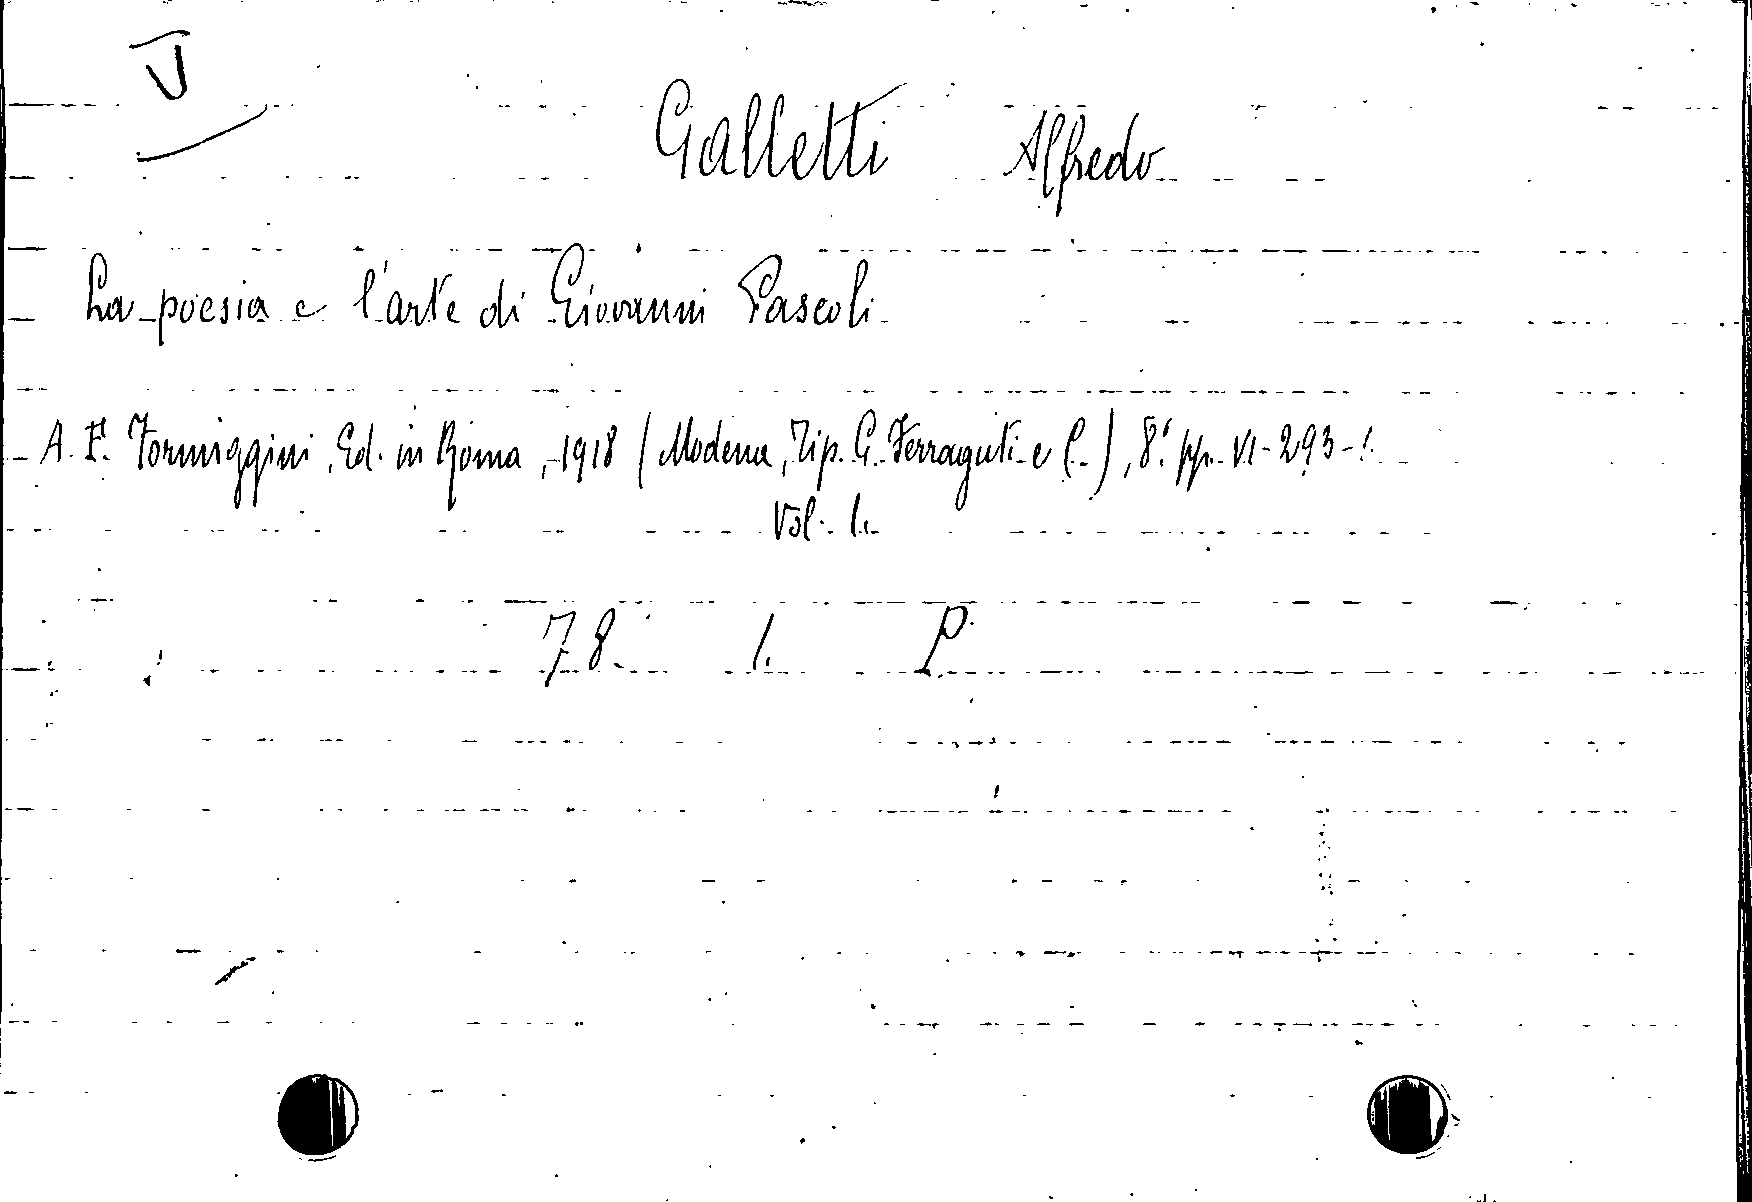 V
Galletti Alfredo
La poesia e l'arte di Giovanni Pascoli
A. F. Formiggini, Ed. in Roma, 1918 (Modena, Tip. G. Ferraguti e C.), 8.° pp. VI-293-1.
Vol. 1.
78. 1. P.